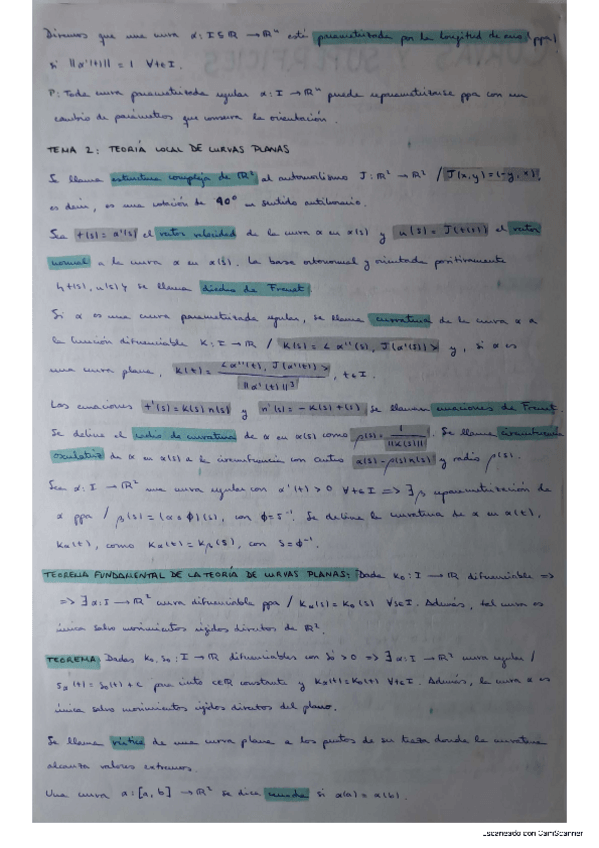 Diremos que una curva α: I⊆ℝ → ℝⁿ está parametrizada por la longitud de arco (ppa)
si ||α'(t)|| = 1 ∀t∈I.
P: Toda curva parametrizada regular α: I → ℝⁿ puede reparametrizarse ppa con un
cambio de parámetros que conserva la orientación.
TEMA 2: TEORÍA LOCAL DE CURVAS PLANAS
Se llama estructura compleja de ℝ² al automorfismo J: ℝ² → ℝ² / J(x,y) = (-y, x),
es decir, es una rotación de 90º en sentido antihorario.
Sea t(s) = α'(s) el vector velocidad de la curva α en α(s) y n(s) = J(t(s)) el vector
normal a la curva α en α(s). La base ortonormal y orientada positivamente
{t(s), n(s)} se llama diedro de Frenet.
Si α es una curva parametrizada regular, se llama curvatura de la curva α a
la función diferenciable K: I → ℝ / K(s) = <α''(s), J(α'(s))> y, si α es
una curva plana, K(t) = <α''(t), J(α'(t))> / ||α'(t)||³, t∈I.
Las ecuaciones t'(s) = K(s) n(s) y n'(s) = -K(s) t(s) se llaman ecuaciones de Frenet.
Se define el radio de curvatura de α en α(s) como ρ(s) = 1 / ||K(s)||. Se llama circunferencia
osculatriz de α en α(s) a la circunferencia con centro α(s) - ρ(s) n(s) y radio ρ(s).
Sea α: I → ℝ² una curva regular con α'(t) > 0 ∀t∈I => ∃β reparametrización de
α ppa / β(s) = (α∘ϕ)(s), con ϕ = s⁻¹. Se define la curvatura de α en α(t),
Kα(t), como Kα(t) = Kβ(s), con s = ϕ⁻¹.
TEOREMA FUNDAMENTAL DE LA TEORÍA DE CURVAS PLANAS: Dada K₀: I → ℝ diferenciable =>
=> ∃α: I → ℝ² curva diferenciable ppa / Kα(s) = K₀(s) ∀s∈I. Además, tal curva es
única salvo movimientos rígidos directos de ℝ².
TEOREMA Dadas K₀, s₀: I → ℝ diferenciables con s₀' > 0 => ∃α: I → ℝ² curva regular /
sα(t) = s₀(t) + c para cierto c∈ℝ constante y Kα(t) = K₀(t) ∀t∈I. Además, la curva α es
única salvo movimientos rígidos directos del plano.
Se llama vértice de una curva plana a los puntos de su traza donde la curvatura
alcanza valores extremos.
Una curva α: [a, b] → ℝ² se dice cerrada si α(a) = α(b).
Escaneado con CamScanner